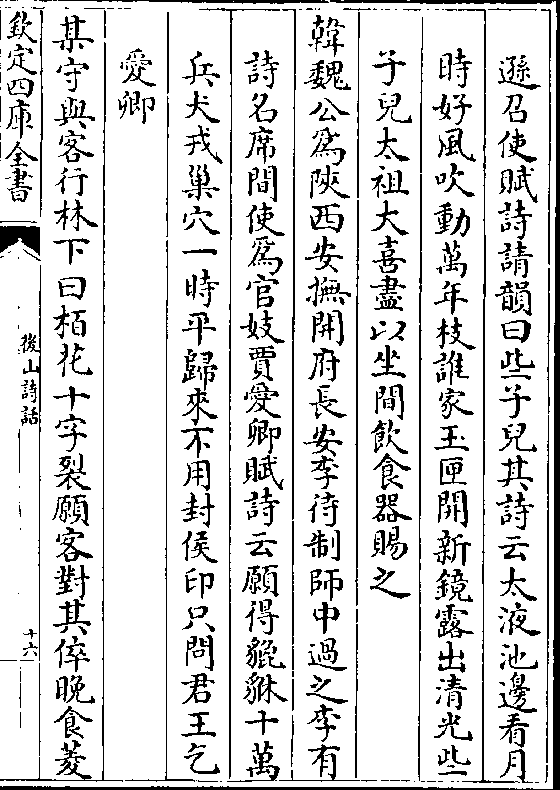 遜召使賦詩請韻曰些子兒其詩云太液池邊看月
時好風吹動萬年枝誰家玉匣開新鏡露出清光些
子兒太祖大喜盡以坐間飲食器賜之
韓魏公爲陝西安撫開府長安李待制師中過之李有
詩名席間使爲官妓賈愛卿賦詩云願得貔貅十萬
兵犬戎巢穴一時平歸來不用封侯印只問君王乞
愛卿
某守與客行林下曰栢花十字裂願客對其倅晚食菱
欽定四庫全書
後山詩話
十六